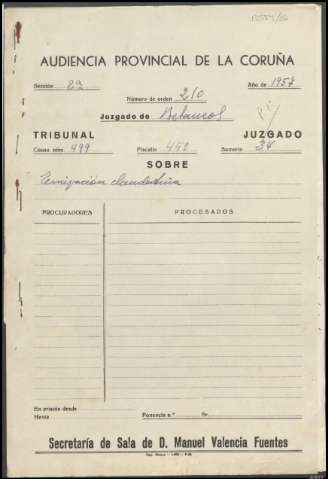 AUDIENCIA PROVINCIAL DE LA CORUÑA
Sección 2ª Año de 1957
Número de orden 210
Juzgado de Betanzos
TRIBUNAL JUZGADO
Causa núm. 499 Fiscalía 440 Sumario 34
SOBRE
Emigración clandestina
PROCURADORES PROCESADOS
En prisión desde
Hasta Ponencia n.º Sr.
Secretaría de Sala de D. Manuel Valencia Fuentes